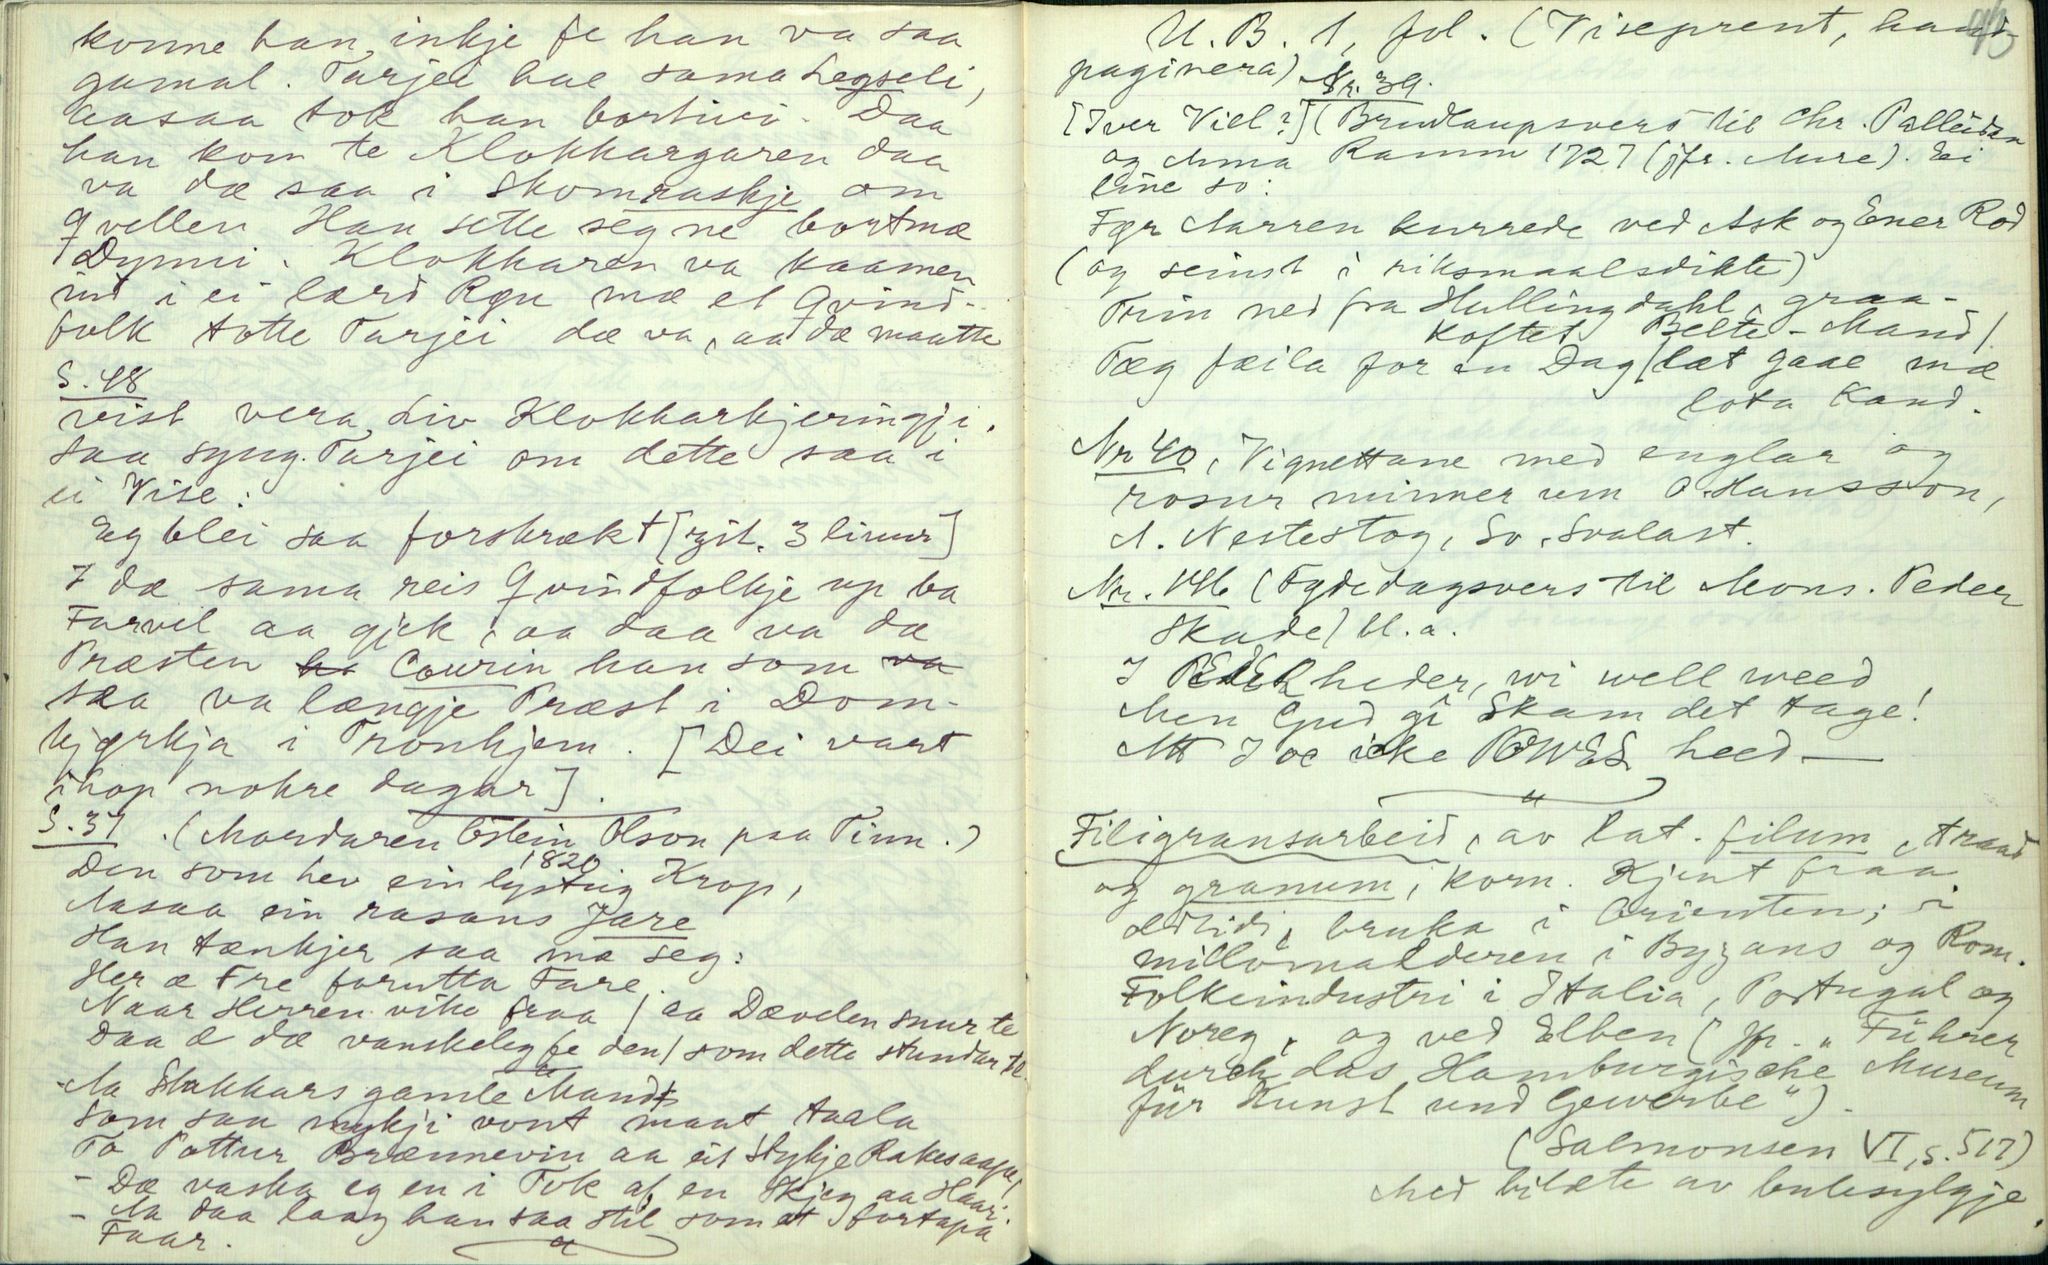 konne han, inkje fe han va saa
gamal. Tarjei hae sama Legseli,
aasaa tok han bortivi. Daa
han kom te Klokkargaren daa
va dæ saa i Skomraskje om
Qvellen Han sette seg ne bortmæ
Dynni. Klokkaren va kaamen
ind i ei lærd Røu mæ et Qvind-
folk totte Tarjei dæ va, aa dæ maatte
S. 48
vist vera Liv Klokkarkjeringji.
Saa syng Tarjei om dette saa i
ei Vise:
Eg blei saa forskrækt [zit. 3 linur]
I dæ sama reis Qvindfolkje up ba
Farvel aa gjek, aa daa va dæ
Præsten Courin han som va
saa va længje Præst i Dom-
kjørkja i Tronhjem. [Dei vart
ihop nokre dagar].
S. 37. (Mordaren Østein Olson paa Tinn.)
1820
Den som hev ein lystig Krop,
Aasaa ein rasans Jare
Han tænkjer saa mæ seg:
Her æ Fre forutta Fare.
Naar Herren vike fraa / aa Dævelen snur te
Daa æ dæ vanskeleg fe den / som dette stundar te.
- Aa Stakkars gamle Mand
som saa mykji vont maat taala
To Pottur Brænnevin aa eit Stykje Rakesaape!
- Dæ vaska eg en i Tok af en Skjeg aa Haar.
- Aa daa laag han saa stil som et fortapa
Faar.
93
U. B. 1, fol. (Viseprent, hand-
paginera) Nr. 39.
[Iver Viel?] (Brudlaupsvers til Chr. Palleson
og Anna Ramm 1727 (jfr. Aure). Ei
line so:
Før Aarren kurrede ved Ask og Ener Rod
(og seinst i riksmaalsdikte)
Trin ned fra Hullingdahl, graa-
koftet Belte-Mand /
Tæg fæila for en Dag / læt gaae mæ
lota Kand.
Nr 40, Vignettane med englar og
rosur minner um O. Hansson,
A. Nestestog, Sv. Svalast.
Nr. 146 (Fødedagsvers til Mons. Peder
Skade) bl. a.
I PEDER heder, wi well weed
Men Gud gi Skam det tage!
Att I oc icke POWEL heed —
Filigransarbeid, av lat. filum, traad
og granum, korn. Kjent fraa
oldtidi, bruka i Orienten; i
millomalderen i Byzans og Rom.
Folkeindustri i Italia, Portugal og
Noreg, og ved Elben (Jfr. "Führer
durch das Hamburgische Museum
für Kunst und Gewerbe").
(Salmonsen VI, s. 517)
Med bilæte av bulesylgje.